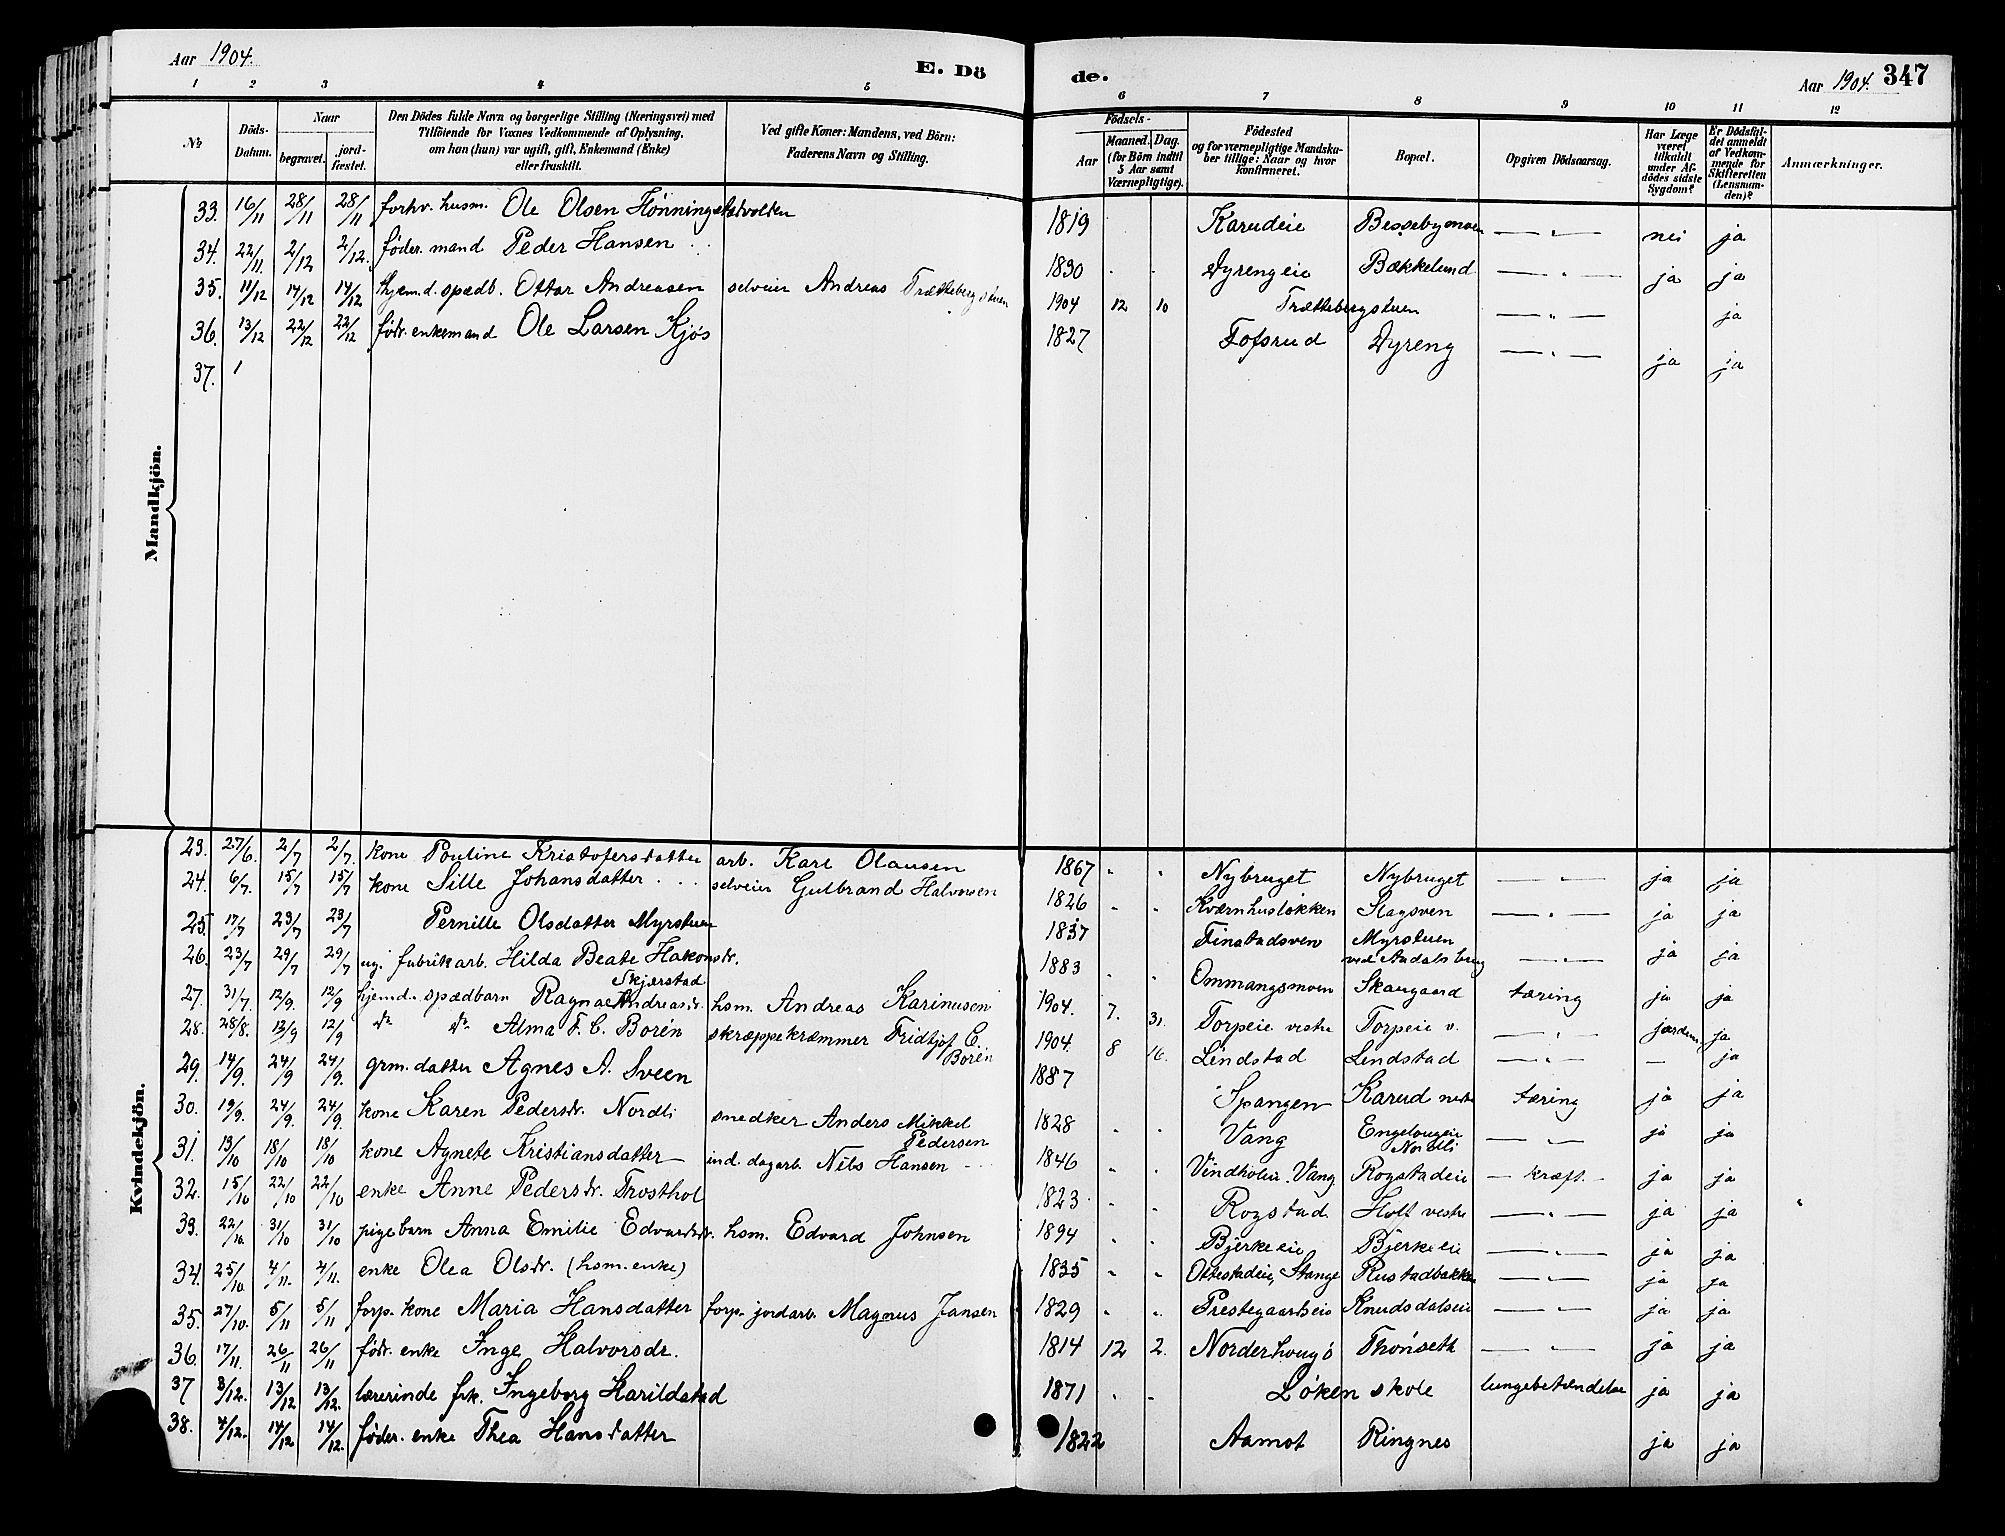 Aar 1904. E. Dö de. Aar 1904. 347
1 2 3 4 5 6 7 8 9 10 11 12
№ Döds-Datum. Naar begravet. jord-fæstet. Den Dödes fulde Navn og borgerlige Stilling (Næringsvei) med Tilföiende for Voxnes Vedkommende af Oplysning, om han (hun) var ugift, gift, Enkemand (Enke) eller fraskilt. Ved gifte Koner: Mandens, ved Börn: Faderens Navn og Stilling. Födsels- Aar Maaned. Dag. (for Börn indtil 5 Aar samt Værnepligtige). Födested og for værnepligtige Mandska-ber tillige: Naar og hvor konfirmeret. Bopæl. Opgiven Dödsaarsag. Har Læge været tilkaldt under Af-dödes sidste Sygdom? Er Dödsfal-det anmeldt af Vedkom-mende for Skifteretten (Lensman-den)? Anmærkninger.
Mandkjön.
33. 16/11 28/11 28/11 forhv. husm. Ole Olsen Hønningstadvolden 1819 Karudeie Bessebymoen — " — nei ja
34. 22/11. 2/12 2/12. føder. mand Peder Hansen 1830 Dyrengeie Bækkelund — " — ja ja
35. 11/12 14/12 14/12 hjem.d. spædb. Ottar Andreasen selveier Andreas Trætteberg stuen 1904 12 10 Trættebergstuen — " — ja
36. 13/12 22/12 22/12 født. enkemand Ole Larsen Kjøs 1827 Tofsrud Dyreng — " — ja ja
37.
Kvindekjön.
23. 27/6. 2/7 2/7. kone Pouline Kristofersdatter arb. Karl Olausen 1867 Nybruget Nybruget — " — ja ja
24. 6/7. 15/7 15/7 kone Sille Johansdatter selveier Gulbrand Halvorsen 1826 Kværnhusløkken Slagsven — " — ja ja
25. 17/7 23/7 23/7 Pernille Olsdatter Myrstuen 1837 Finstadsven Myrstuen ved Aadals brug — " — ja ja
26. 23/7 29/7 29/7 ug. fabrikarb. Hilda Beate Hakonsdr. Skjærstad 1883 Ommangsmoen Skaugaard tæring ja ja
27. 31/7. 12/9. 12/9 hjemd. spædbarn Ragna Andreasdr. hsm. Andreas Karinusen 1904. 7. 31. Torpeie vestre Torpeie v. — " — jordem. ja
28. 28/8. 13/9 12/9 do do Alma F. C. Borén skræppekræmmer Fridtjof C. Borén 1904. 8 16. Lindstad Lindstad — " — — ja
29. 14/9. 24/9 24/9. grm. datter Agnes A. Sveen 1887 Spangen Karud nedre tæring ja ja
30. 19/9. 24/9. 24/9. kone Karen Pedersdr. Nordli snedker Anders Mikkel Pedersen 1828 Vang Engelaugeie Nordli — " — ja ja
31. 13/10 18/10 18/10 kone Agnete Kristiansdatter ind. dagarb. Nils Hansen 1846 Vindholen Vang Rogstadeie — kræft. — ja ja
32. 15/10 22/10 22/10 enke Anne Pedersdr. Trosthol 1823 Rogstad Holt vestre — " — ja ja
33. 22/10 31/10 31/10 pigebarn Anna Emilie Edvardsdr. hsm. Edvard Johnsen 1894 Bjerkeeie Bjerkeeie — " — ja ja
34. 25/10 4/11. 4/11. enke Olea Olsdr. (hsm. enke) 1835 Ottestadeie, Stange Rustadbakken — " — ja ja
35. 27/10. 5/11 5/11 forp. kone Maria Hansdatter forp. jordarb. Magnus Jansen 1829 Prestegaardseie Knudsdalseie — " — ja ja
36. 17/11. 26/11 26/11 født. enke Inge Halvorsdr. 1814 12 2. Norderhougø Thønseth — " — ja ja
37 3/12. 13/12 13/12. lærerinde frk. Ingeborg Harildstad 1871 Løken skole lungebetændelse ja ja
38. 4/12. 14/12 14/12. føder. enke Thea Hansdatter 1822 Aamot Ringnes ja ja